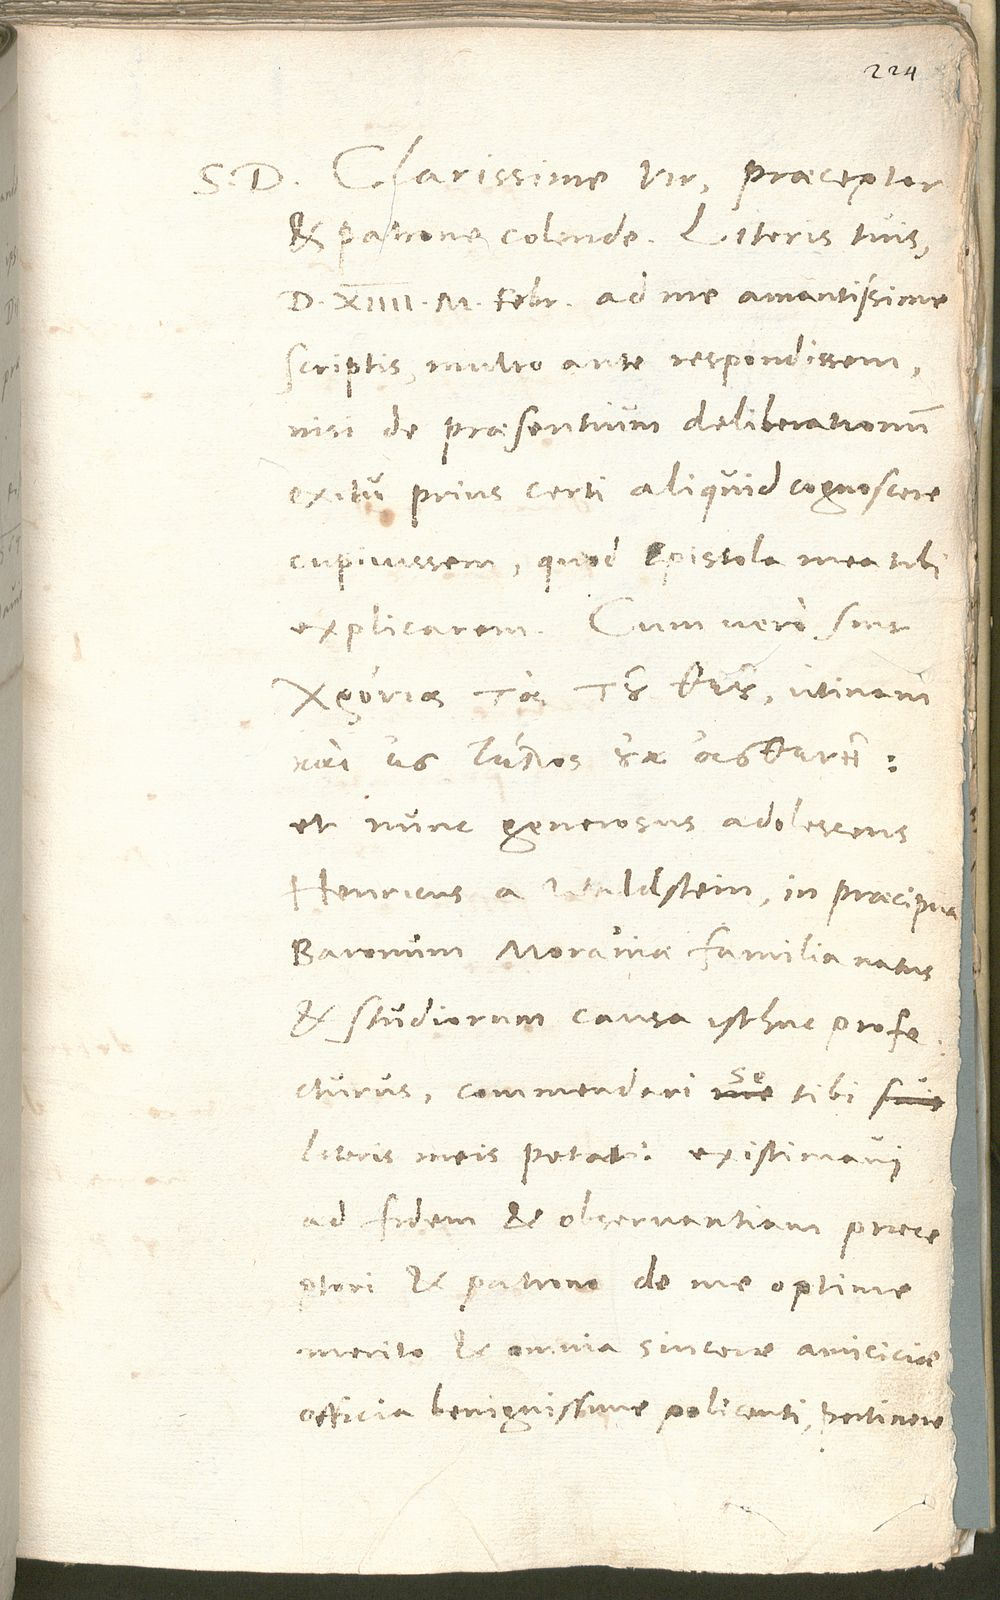 224
S. D. Clarissime Vir, præceptor
& patrone colende. Literis tuis,
D. XIIII. M. Febr. ad me amantissime
scriptis, multo ante respondissem,
nisi de præsentium deliberationũ
exitu prius certi aliquid cognoscere
cupiuissem, quod Epistola mea tibi
explicarem. Cum uerò sint
χρόνια τὰ τȣ͂ θεȣ͂, utinam
καὶ εἰς τέλος ȣκ ἀσθενῆ:
et nunc generosus adolescens
Henricus a Waldstein, in præcipua
Baronum Morauiæ familia natus
& studiorum causa isthuc profe
cturus, commendari me se tibi
literis meis petat: existimaui
ad fidem & obseruantiam præce
ptori & patrono de me optime
merito & omnia sinceræ amiciciæ
officia benignissime policenti, pertinere